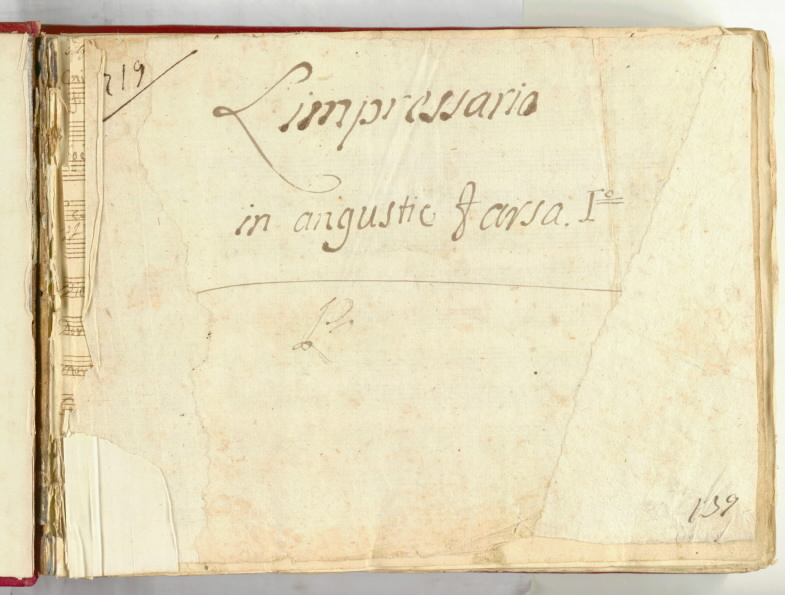 219
Limpressario
in angustie farsa. Iº
139